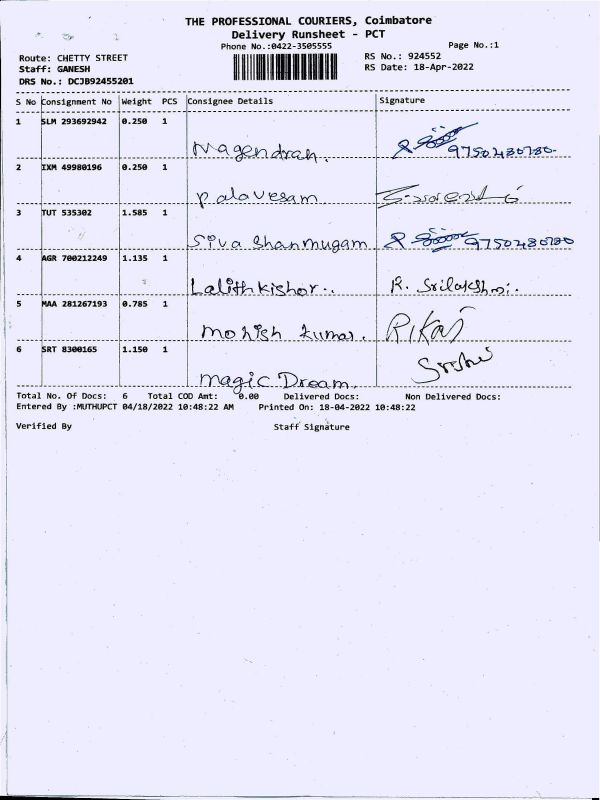 THE PROFESSIONAL COURIERS, Coimbatore
Delivery Runsheet - PCT
Phone No.:0422-3505555
Page No.:1
Route: CHETTY STREET
RS No.: 924552
Staff: GANESH
RS Date: 18-Apr-2022
DRS No.: DCJB92455201
S No Consignment No Weight PCS Consignee Details Signature
1 SLM 293692942 0.250 1
Magendran. 9750480780.
2 IXM 49980196 0.250 1
Palavesam
3 TUT 535302 1.585 1
Siva Shanmugam 9750480780
4 AGR 700212249 1.135 1
Lalith kishor.. R. Srilakshmi.
5 MAA 281267193 0.785 1
Mohish kumar.
6 SRT 8300165 1.150 1
magic Dream.
Total No. Of Docs: 6 Total COD Amt: 0.00 Delivered Docs: Non Delivered Docs:
Entered By :MUTHUPCT 04/18/2022 10:48:22 AM Printed On: 18-04-2022 10:48:22
Verified By Staff Signature